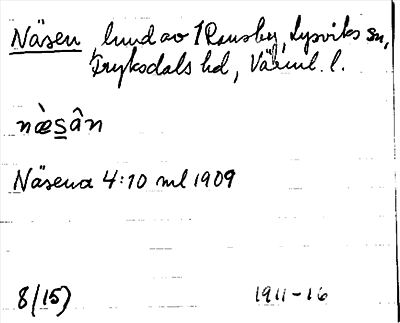 Näsen, lund av 1 Ransby, Lysviks sn,
Fryksdals hd, Värml. l.
næ̀s̲ân
Näsena 4:10 ml 1909
8/15) 1911-16